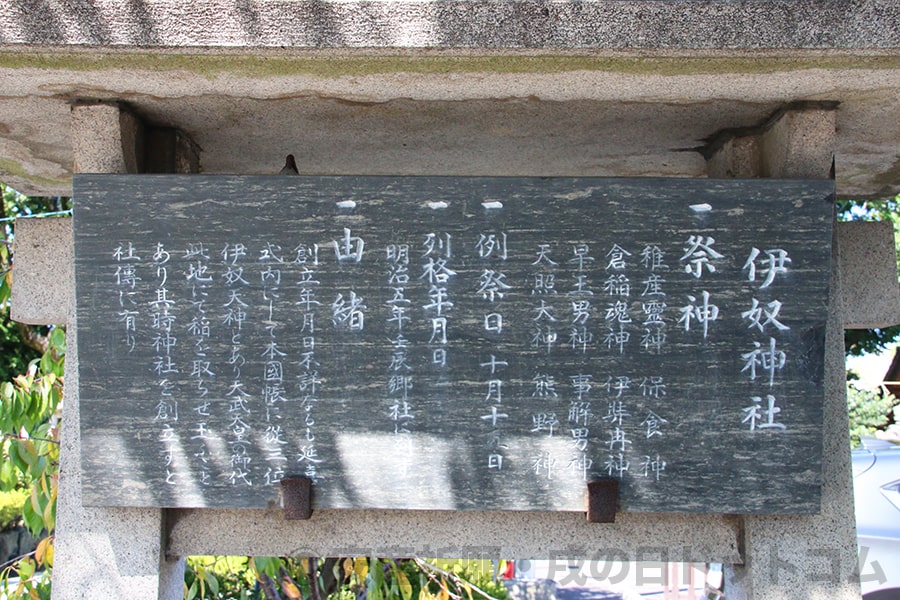 伊奴神社
一 祭神
稚産霊神 保食神
倉稲魂神 伊弉冉神
早玉男神 事解男神
天照大神 熊野神
一 例祭日 十月十日
一 列格年月日
明治五年壬辰郷社に
一 由緒
創立年月日不詳なるも延喜
式内にして本國帳に従三位
伊奴天神とあり天武天皇の御代
此地して稲を取らせ玉ふこと
あり其時神社を創立すと
社傳に有り
・戌の日ドットコム